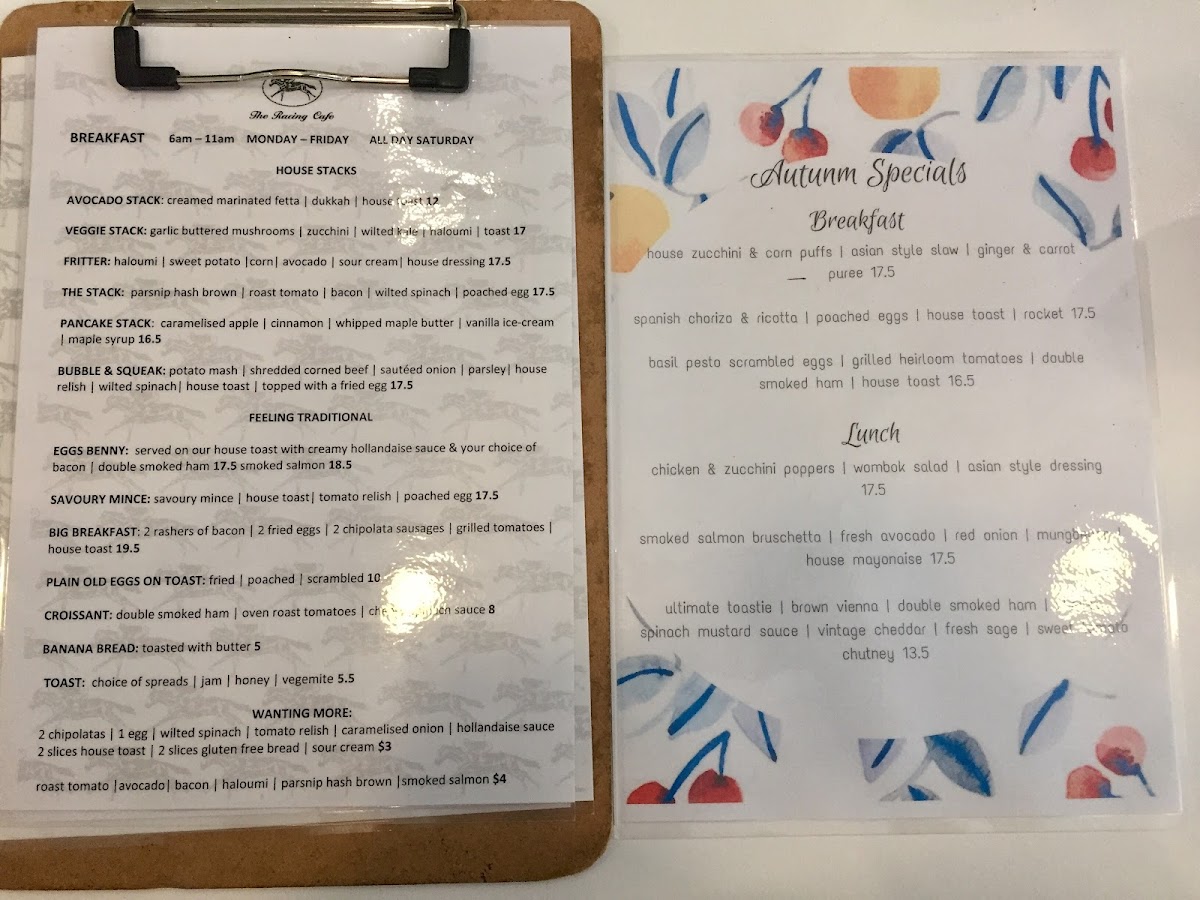 The Racing Cafe
BREAKFAST 6am – 11am MONDAY – FRIDAY ALL DAY SATURDAY
HOUSE STACKS
AVOCADO STACK: creamed marinated fetta | dukkah | house toast 12
VEGGIE STACK: garlic buttered mushrooms | zucchini | wilted kale | haloumi | toast 17
FRITTER: haloumi | sweet potato |corn| avocado | sour cream| house dressing 17.5
THE STACK: parsnip hash brown | roast tomato | bacon | wilted spinach | poached egg 17.5
PANCAKE STACK: caramelised apple | cinnamon | whipped maple butter | vanilla ice-cream
| maple syrup 16.5
BUBBLE & SQUEAK: potato mash | shredded corned beef | sautéed onion | parsley| house
relish | wilted spinach| house toast | topped with a fried egg 17.5
FEELING TRADITIONAL
EGGS BENNY: served on our house toast with creamy hollandaise sauce & your choice of
bacon | double smoked ham 17.5 smoked salmon 18.5
SAVOURY MINCE: savoury mince | house toast| tomato relish | poached egg 17.5
BIG BREAKFAST: 2 rashers of bacon | 2 fried eggs | 2 chipolata sausages | grilled tomatoes |
house toast 19.5
PLAIN OLD EGGS ON TOAST: fried | poached | scrambled 10
CROISSANT: double smoked ham | oven roast tomatoes | sauce 8
BANANA BREAD: toasted with butter 5
TOAST: choice of spreads | jam | honey | vegemite 5.5
WANTING MORE:
2 chipolatas | 1 egg | wilted spinach | tomato relish | caramelised onion | hollandaise sauce
2 slices house toast | 2 slices gluten free bread | sour cream $3
roast tomato |avocado| bacon | haloumi | parsnip hash brown |smoked salmon $4
Autunm Specials
Breakfast
house zucchini & corn puffs | asian style slaw | ginger & carrot
puree 17.5
spanish chorizo & ricotta | poached eggs | house toast | rocket 17.5
basil pesto scrambled eggs | grilled heirloom tomatoes | double
smoked ham | house toast 16.5
Lunch
chicken & zucchini poppers | wombok salad | asian style dressing
17.5
smoked salmon bruschetta | fresh avocado | red onion |
house mayonaise 17.5
ultimate toastie | brown vienna | double smoked ham |
spinach mustard sauce | vintage cheddar | fresh sage | sweet
chutney 13.5